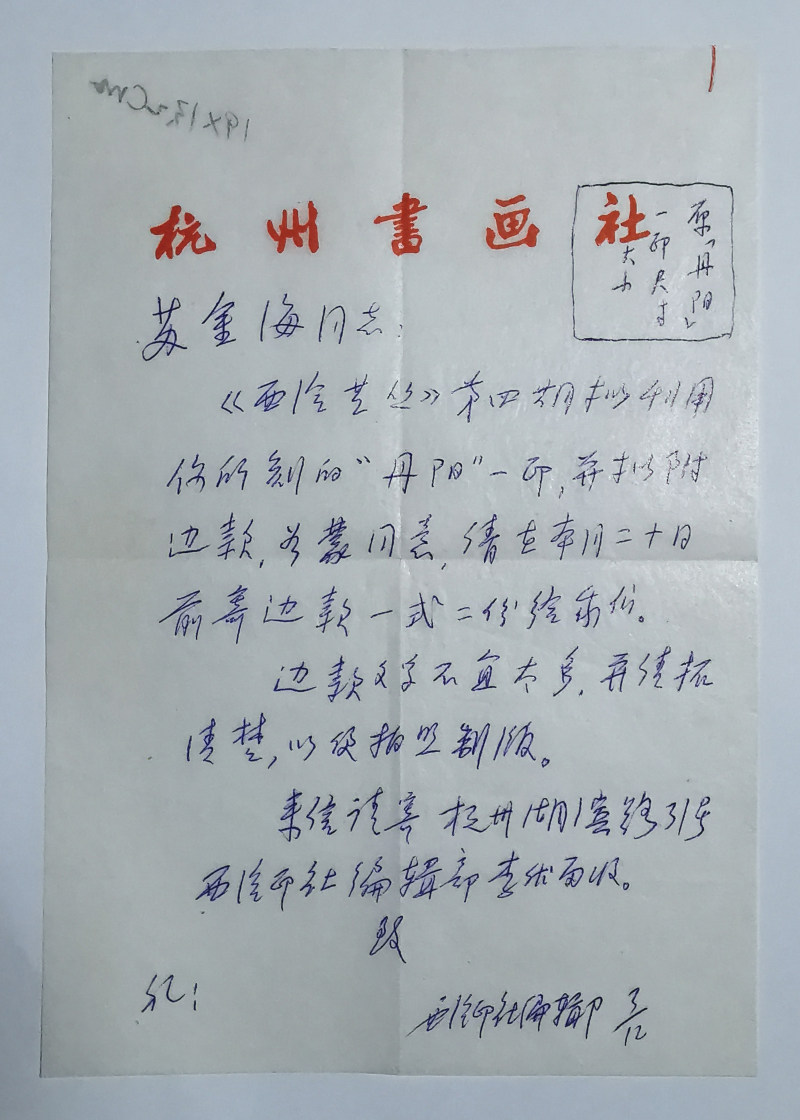 19×13.2cm
杭州書画社
原“丹阳”
一印尺寸
大小
苏金海同志：
《西泠艺丛》第四期拟刊用
你所刻的“丹阳”一印，并拟附
边款，若蒙同意，请在本月二十日
前寄边款一式二份给我们。
边款文字不宜太多，并请拓
清楚，以便拍照制版。
来信请寄杭州湖滨路31号
西泠印社编辑部李伏雨收。
致
礼！
西泠印社编辑部